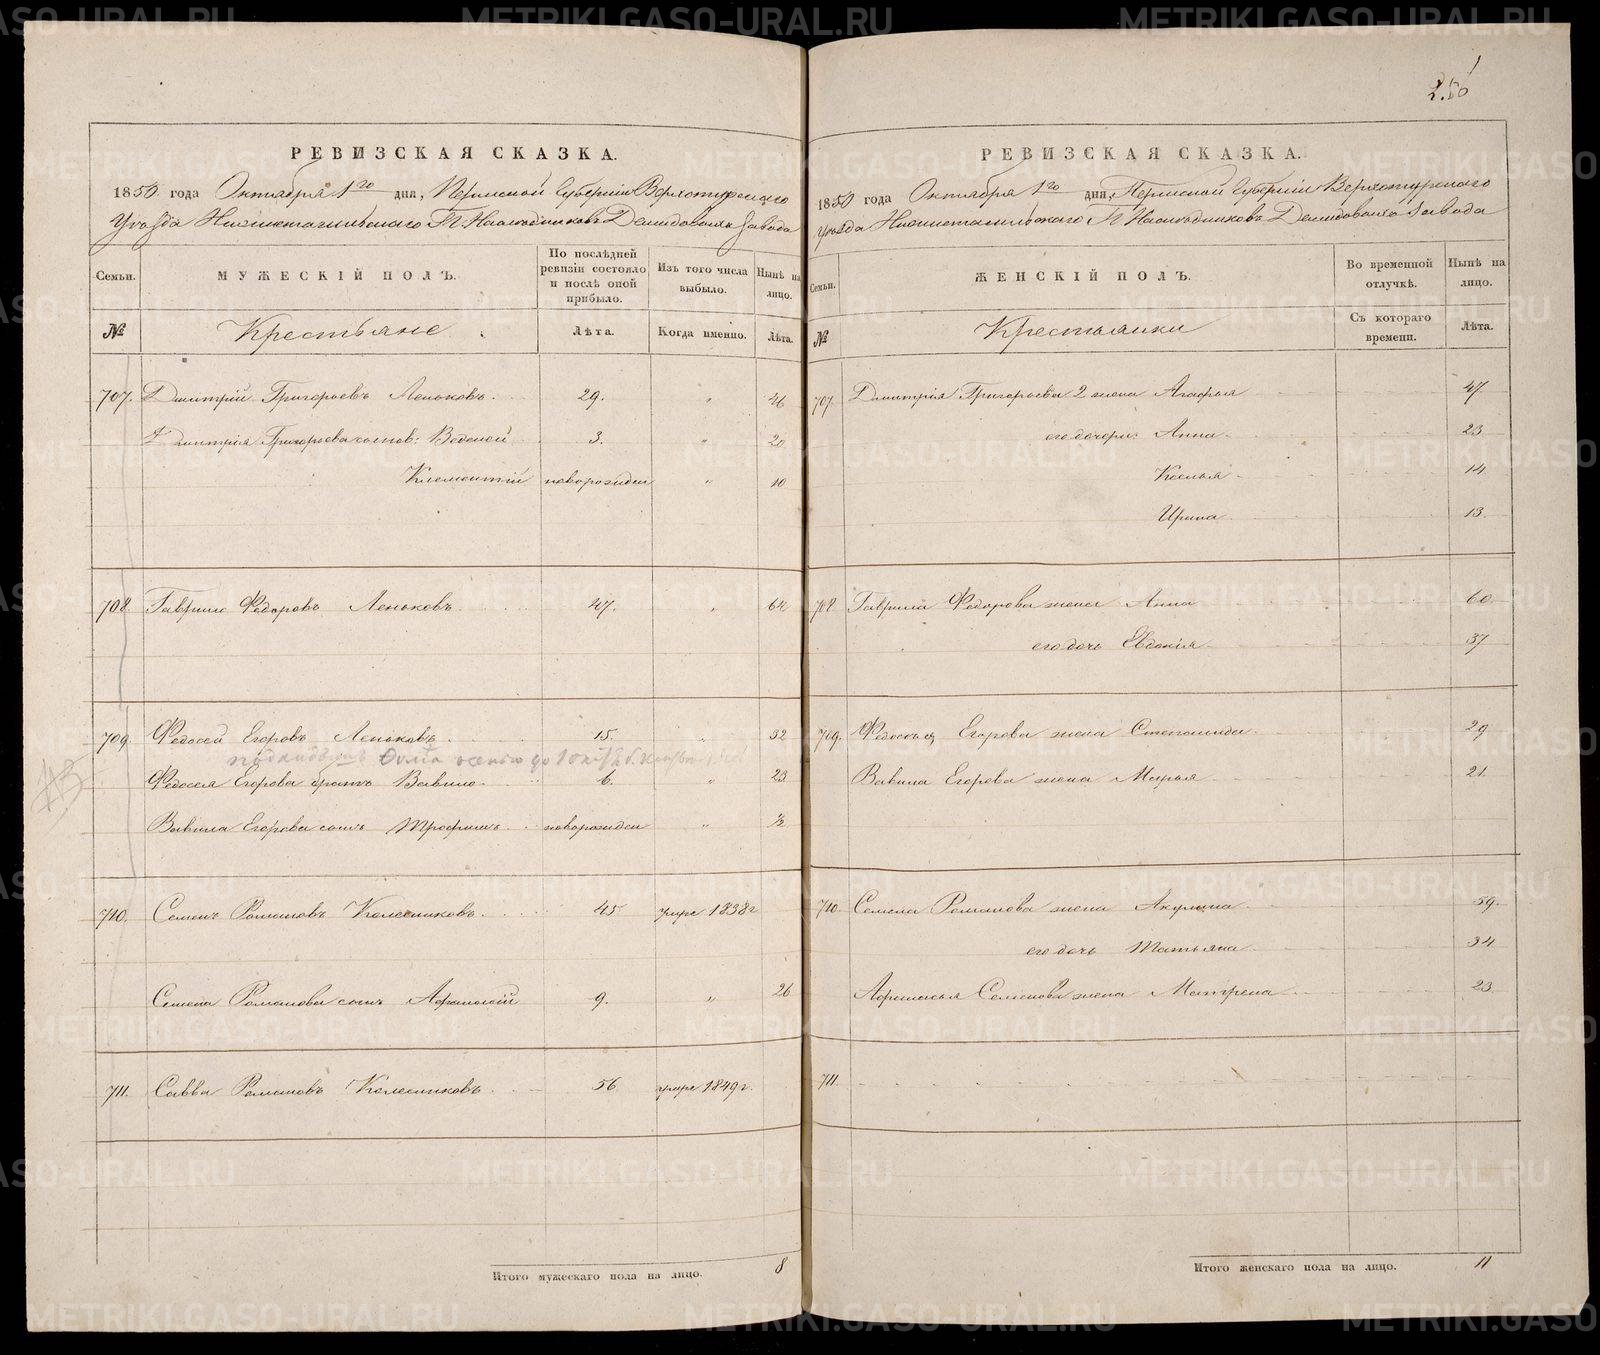 250
РЕВИЗСКАЯ СКАЗКА.
1850 года Октября 1го дня, Пермской Губернiи Верхотурскаго
Уѣзда Нижнетагильскаго Гг. Наслѣдниковъ Демидовыхъ Завода
Семьи.
МУЖЕСКIЙ ПОЛЪ.
По послѣдней ревизiи состояло и послѣ оной прибыло.
Изъ того числа выбыло.
Нынѣ на лицо.
№
Крестьяне
Лѣта.
Когда именно.
Лѣта.
707. Дмитрiй Григорьевъ Леньковъ. 29. " 46
Дмитрiя Григорьева сынов: Веденей 3. " 20
Климентiй новорожден " 10
708 Гаврило Федоровъ Леньковъ. 47. " 64
709. Федосей Егоровъ Леньковъ. 15. " 32
Федосея Егорова братъ Вавило 6. " 23
Вавила Егорова сынъ Трофимъ новорожден "
710. Семенъ Романовъ Колесниковъ. 45 умре 1838 г
Семена Романова сынъ 9. " 26
711. Савва Романовъ Колесниковъ. 56 умре 1849 г.
Итого мужескаго пола на лицо. 8
РЕВИЗСКАЯ СКАЗКА.
1850 года Октября 1го дня, Пермской Губернiи Верхотурскаго
Уѣзда Нижнетагильскаго Гг. Наслѣдниковъ Демидовыхъ Завода
Семьи.
ЖЕНСКIЙ ПОЛЪ.
Во временной отлучкѣ.
Нынѣ на лицо.
№
Крестьянки
Съ котораго времени.
Лѣта.
707. Дмитрiя Григорьева 2 жена Агафья 47
его дочери: Анна 23
Ксенья 14
Ирина 13.
708. Гаврила Федорова жена Анна 60
его дочь Евдокiя 37
709. Федосѣя Егорова жена Степанида 29
Вавила Егорова жена Марья 21.
710. Семена Романова жена Акулина 59.
его дочь Татьяна 34
Семенова жена Матрена 23
711.
Итого женскаго пола на лицо. 11
METRIKI.GASO-URAL.RU